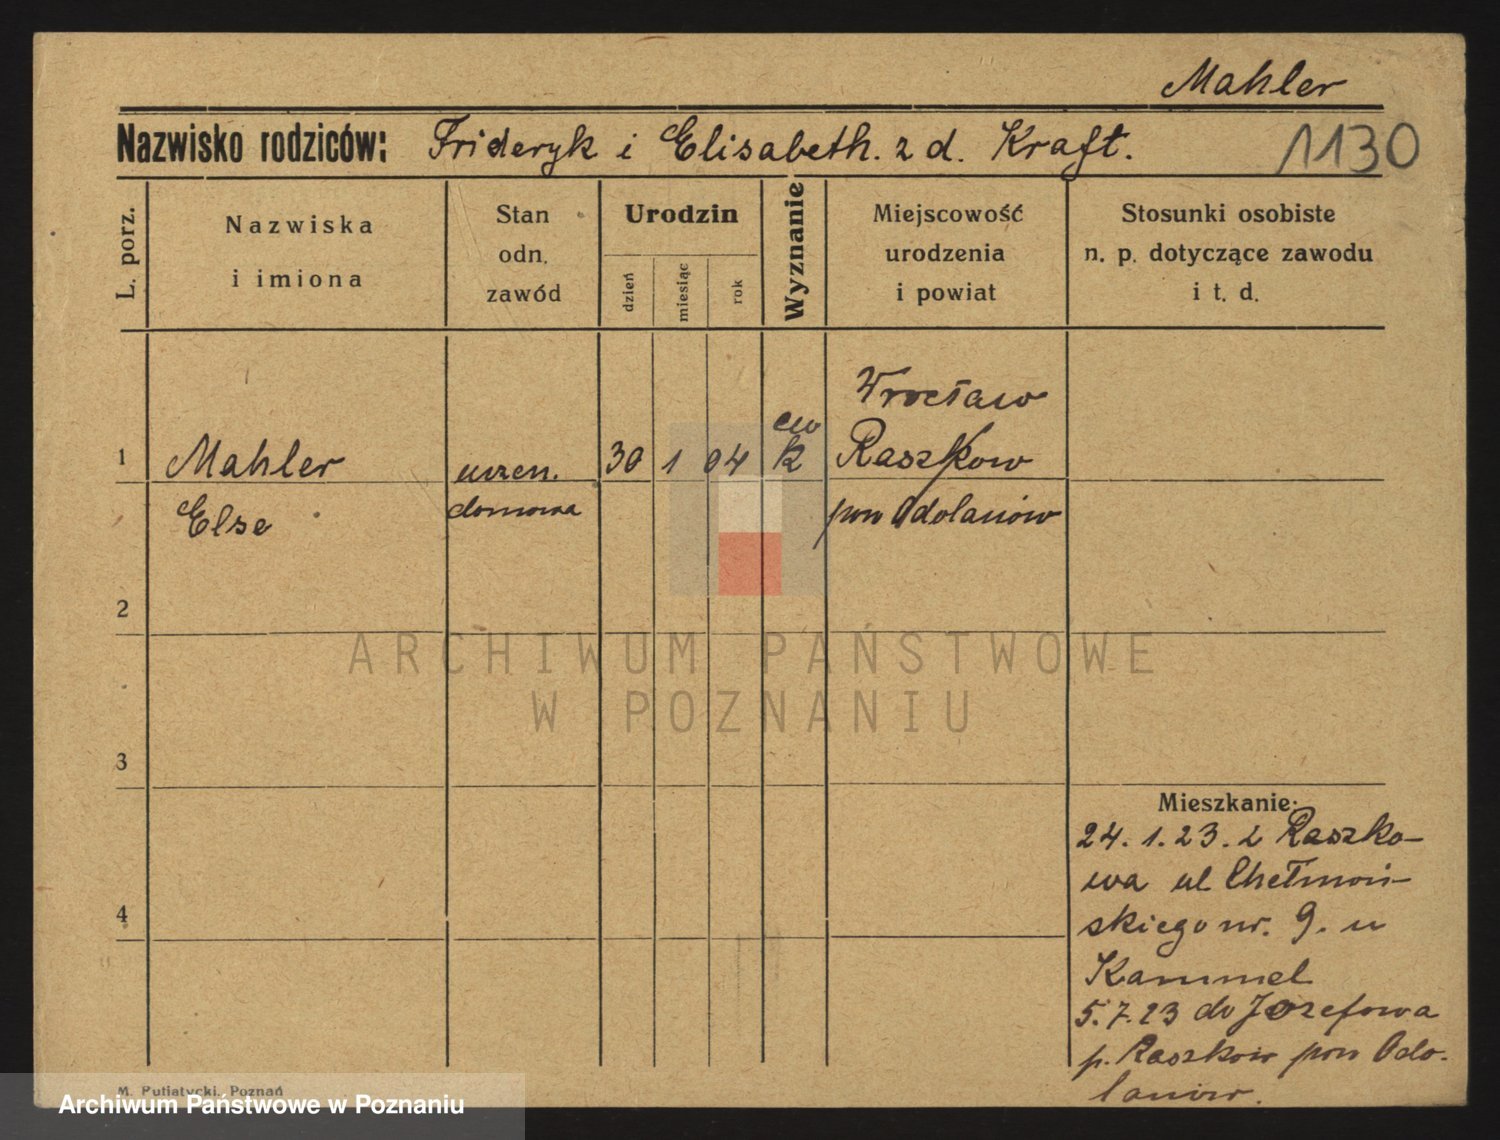 Mahler
Nazwisko rodziców: Frideryk i Elisabeth. z d. Kraft.
1130
L. porz.
Nazwiska
i imiona
Stan
odn.
zawód
Urodzin
dzień
miesiąc
rok
Wyznanie
Miejscowość
urodzenia
i powiat
Stosunki osobiste
n. p. dotyczące zawodu
i t. d.
1
Mahler
Else
uczen.
domowa
30 1 04
ew
k
Wrocław
Raszkow
pow Odolanów
2
3
4
Mieszkanie:
24. 1. 23. z Raszko-
wa ul Chełmoń-
skiego nr. 9. u
Kammel
5. 7. 23 do Jozefowa
p. Raszków pow Odo-
lanów.
M. Putiatycki, Poznań
ARCHIWUM PAŃSTWOWE
W POZNANIU
Archiwum Państwowe w Poznaniu